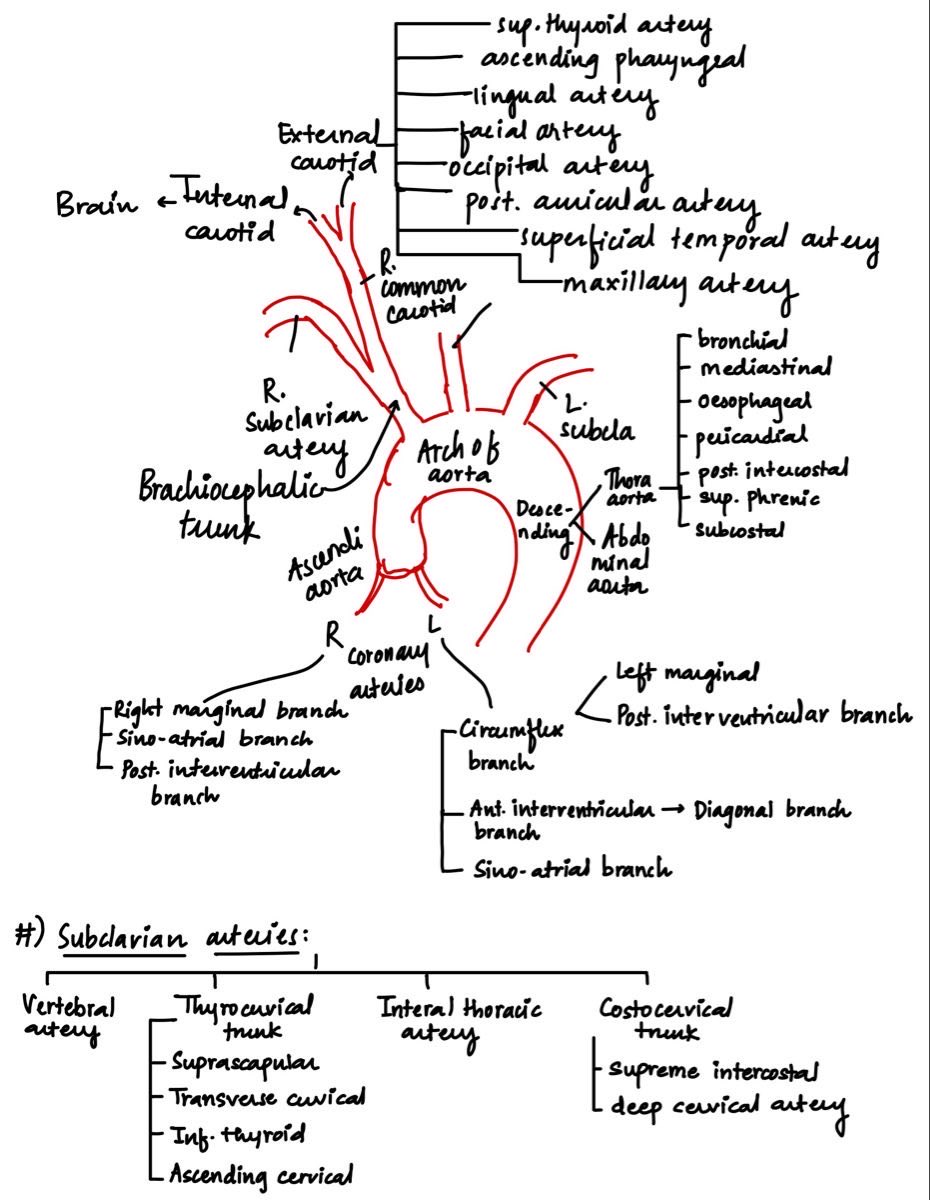 sup. thyroid artery
ascending pharyngeal
lingual artery
facial artery
occipital artery
post. auricular artery
superficial temporal artery
maxillary artery
External
carotid
Brain ← Internal
carotid
R.
common
carotid
R.
Subclavian
artery
Brachiocephalic
trunk
Arch of
aorta
L.
subcla
bronchial
mediastinal
oesophageal
pericardial
post. intercostal
sup. phrenic
subcostal
Thora
aorta
Desce-
nding
Abdo
minal
aorta
Ascendi
aorta
R
L
coronary
arteries
Right marginal branch
Sino-atrial branch
Post. interventricular
branch
Left marginal
Post. interventricular branch
Circumflex
branch
Ant. interventricular → Diagonal branch
branch
Sino-atrial branch
#) Subclavian arteries:
Vertebral
artery
Thyrocervical
trunk
Suprascapular
Transverse cervical
Inf. thyroid
Ascending cervical
Interal thoracic
artery
Costocervical
trunk
Supreme intercostal
deep cervical artery